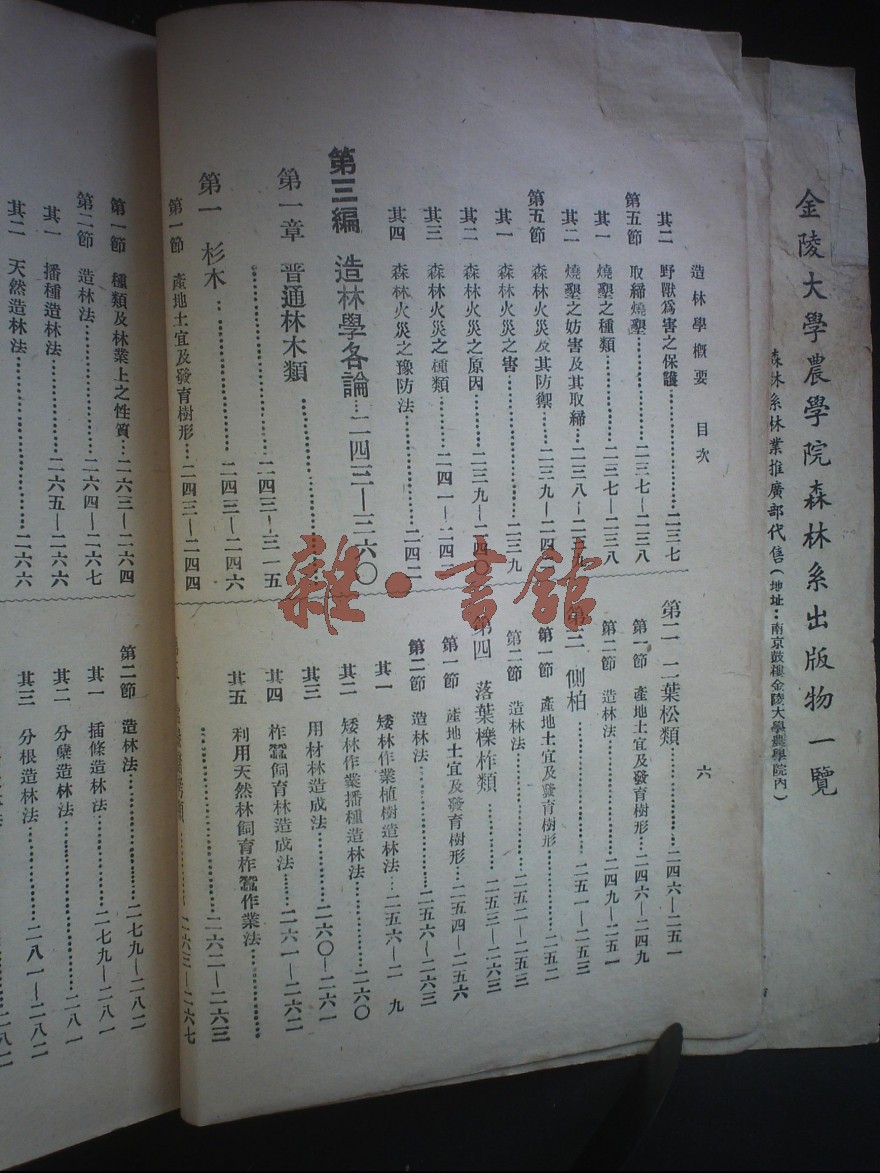 金陵大學農學院森林系出版物一覽
森林系林業推廣部代售(地址:南京鼓樓金陵大學農學院內)
造林學概要 目次 六
其二 野獸爲害之保護…………二三七
第五節 取締燒墾…………二三七—二三八
其一 燒墾之種類…………二三七—二三八
其二 燒墾之妨害及其取締…二三八—二三九
第五節 森林火災及其防禦…二三九—二四二
其一 森林火災之害…………二三九
其二 森林火災之原因…………二三九—二四〇
其三 森林火災之種類…………二四一—二四二
其四 森林火災之豫防法…………二四二
第三編 造林學各論…二四三—三六〇
第一章 普通林木類…………
…………二四三—三一五
第一 杉木…………二四三—二四六
第一節 產地土宜及發育樹形…二四三—二四四
第二 二葉松類…………二四六—二五一
第一節 產地土宜及發育樹形…二四六—二四九
第二節 造林法…………二四九—二五一
第三 側柏…………二五一—二五三
第一節 產地土宜及發育樹形…………二五二
第二節 造林法…………二五二—二五三
第四 落葉櫟柞類…………二五三—二六三
第一節 產地土宜及發育樹形…二五四—二五六
第二節 造林法…………二五六—二六三
其一 矮林作業植樹造林法…二五六—二 九
其二 矮林作業播種造林法…………二六〇
其三 用材林造成法…………二六〇—二六一
其四 柞蠶飼育林造成法…………二六一—二六二
其五 利用天然林飼育柞蠶作業法…………
…………二六二—二六三
…………二六三—二六七
第一節 種類及林業上之性質…二六三—二六四
第二節 造林法…………二六四—二六七
其一 播種造林法…………二六五—二六六
其二 天然造林法…………二六六
第二節 造林法…………二七九—二八二
其一 插條造林法…………二七九—二八一
其二 分蘗造林法…………二八一
其三 分根造林法…………二八一—二八二
雜·書館